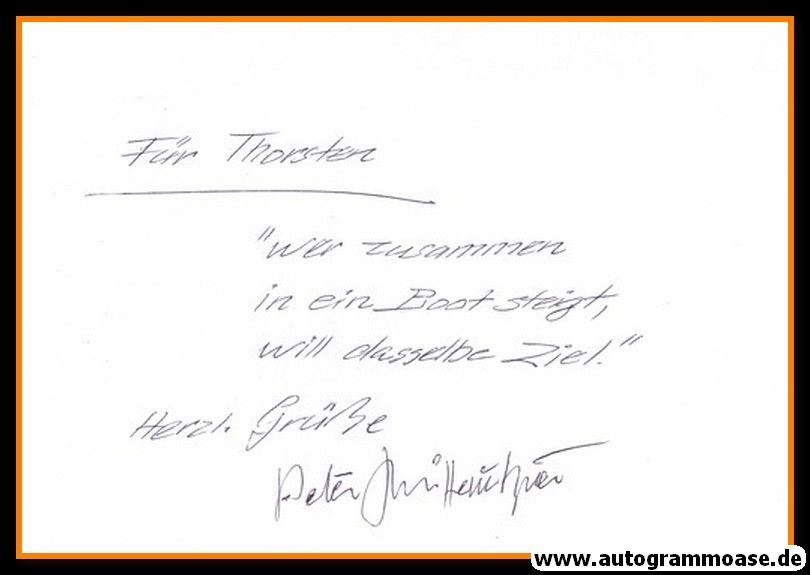 Für Thorsten
"Wer zusammen
in ein Boot steigt,
will dasselbe Ziel."
Herzl. Grüße
Peter
www.autogrammoase.de